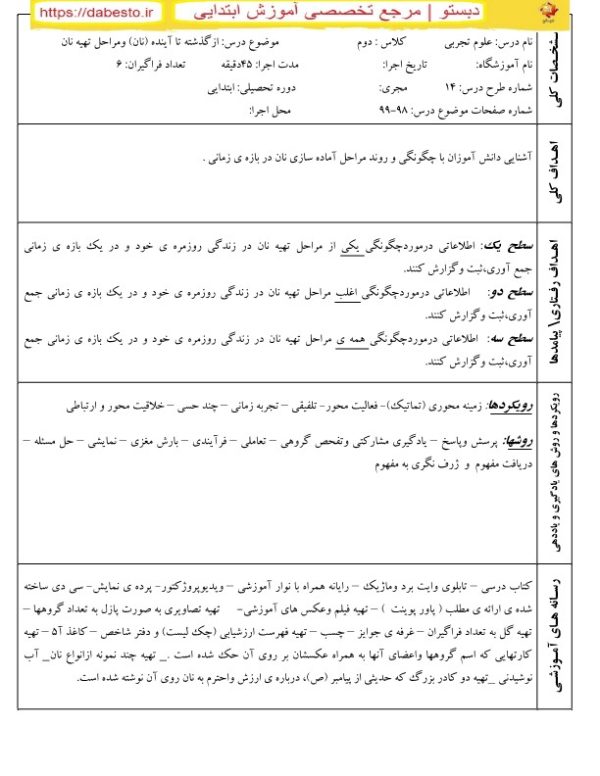 دبستو | مرجع تخصصی آموزش ابتدایی https://dabesto.ir
مشخصات کلی
نام درس: علوم تجربی کلاس : دوم موضوع درس: ازگذشته تا آینده (نان) ومراحل تهیه نان
نام آموزشگاه: تاریخ اجرا: مدت اجرا: ۴۵دقیقه تعداد فراگیران: ۶
شماره طرح درس: ۱۴ مجری: دوره تحصیلی: ابتدایی
شماره صفحات موضوع درس: ۹۸-۹۹ محل اجرا:
اهداف کلی
آشنایی دانش آموزان با چگونگی و روند مراحل آماده سازی نان در بازه ی زمانی .
اهداف رفتاری\ پیامدها
سطح یک: اطلاعاتی درموردچگونگی یکی از مراحل تهیه نان در زندگی روزمره ی خود و در یک بازه ی زمانی
جمع آوری،ثبت وگزارش کنند.
سطح دو: اطلاعاتی درموردچگونگی اغلب مراحل تهیه نان در زندگی روزمره ی خود و در یک بازه ی زمانی جمع
آوری،ثبت وگزارش کنند.
سطح سه: اطلاعاتی درموردچگونگی همه ی مراحل تهیه نان در زندگی روزمره ی خود و در یک بازه ی زمانی جمع
آوری،ثبت وگزارش کنند.
رویکردها و روش های یادگیری و یاددهی
رویکردها: زمینه محوری (تماتیک)- فعالیت محور- تلفیقی – تجربه زمانی – چند حسی – خلاقیت محور و ارتباطی
روشها: پرسش وپاسخ – یادگیری مشارکتی وتفحص گروهی – تعاملی – فرآیندی – بارش مغزی – نمایشی – حل مسئله –
دریافت مفهوم و ژرف نگری به مفهوم
رسانه های آموزشی
کتاب درسی – تابلوی وایت برد وماژیک – رایانه همراه با نوار آموزشی – ویدیوپروژکتور- پرده ی نمایش- سی دی ساخته
شده ی ارائه ی مطلب ( پاور پوینت ) – تهیه فیلم وعکس های آموزشی- تهیه تصاویری به صورت پازل به تعداد گروهها –
تهیه گل به تعداد فراگیران – غرفه ی جوایز – چسب – تهیه فهرست ارزشیابی (چک لیست) و دفتر شاخص – کاغذ آ۵ – تهیه
کارتهایی که اسم گروهها واعضای آنها به همراه عکسشان بر روی آن حک شده است ._ تهیه چند نمونه ازانواع نان_ آب
نوشیدنی _تهیه دو کادر بزرگ که حدیثی از پیامبر (ص)، درباره ی ارزش واحترم به نان روی آن نوشته شده است.